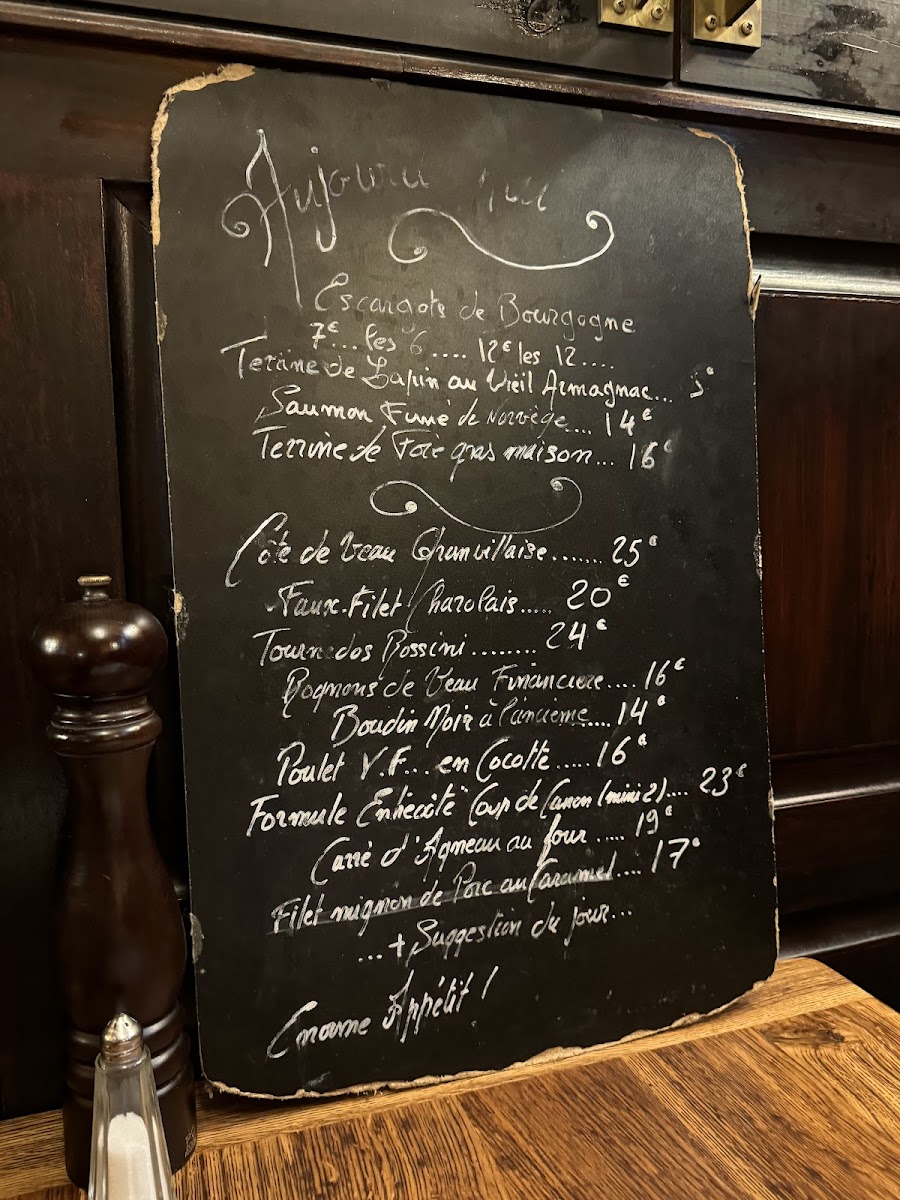 Aujourd'hui
Escargots de Bourgogne
7€... les 6.... 12€ les 12....
Terrine de Lapin au Vieil Armagnac...
Saumon Fumé de Norvège.... 14€
Terrine de Foie gras maison... 16€
Côte de Veau Granvillaise....... 25€
Faux-Filet Charolais..... 20€
Tournedos Rossini........ 24€
Rognons de Veau Financière.... 16€
Boudin Noir à l'ancienne.... 14€
Poulet V.F... en Cocotte..... 16€
Formule Entrecôte "Coup de Canon (mini 2).... 23€
Carré d'Agneau au four..... 19€
Filet mignon de Porc au Caramel.... 17€
...+ Suggestion du jour...
Enorme Appétit !